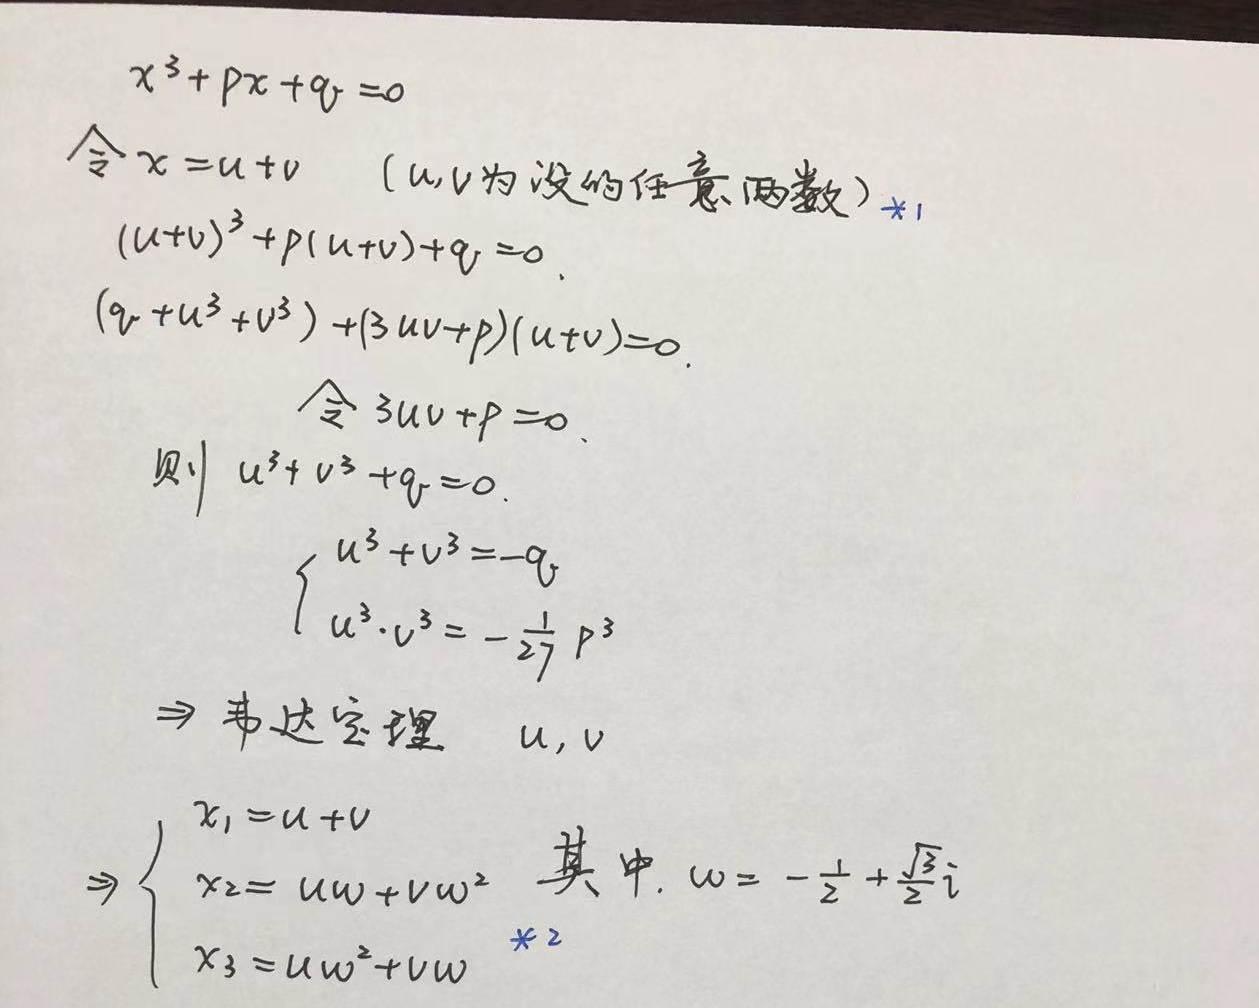 x³+px+q=0
令 x=u+v (u,v为设的任意两数) *1
(u+v)³+p(u+v)+q=0.
(q+u³+v³)+(3uv+p)(u+v)=0.
令 3uv+p=0.
则 u³+v³+q=0.
u³+v³=-q
u³·v³=-1/27 p³
⇒ 韦达定理 u,v
x₁=u+v
⇒ x₂=uω+vω² 其中. ω=-1/2+√3/2 i
x₃=uω²+vω *2